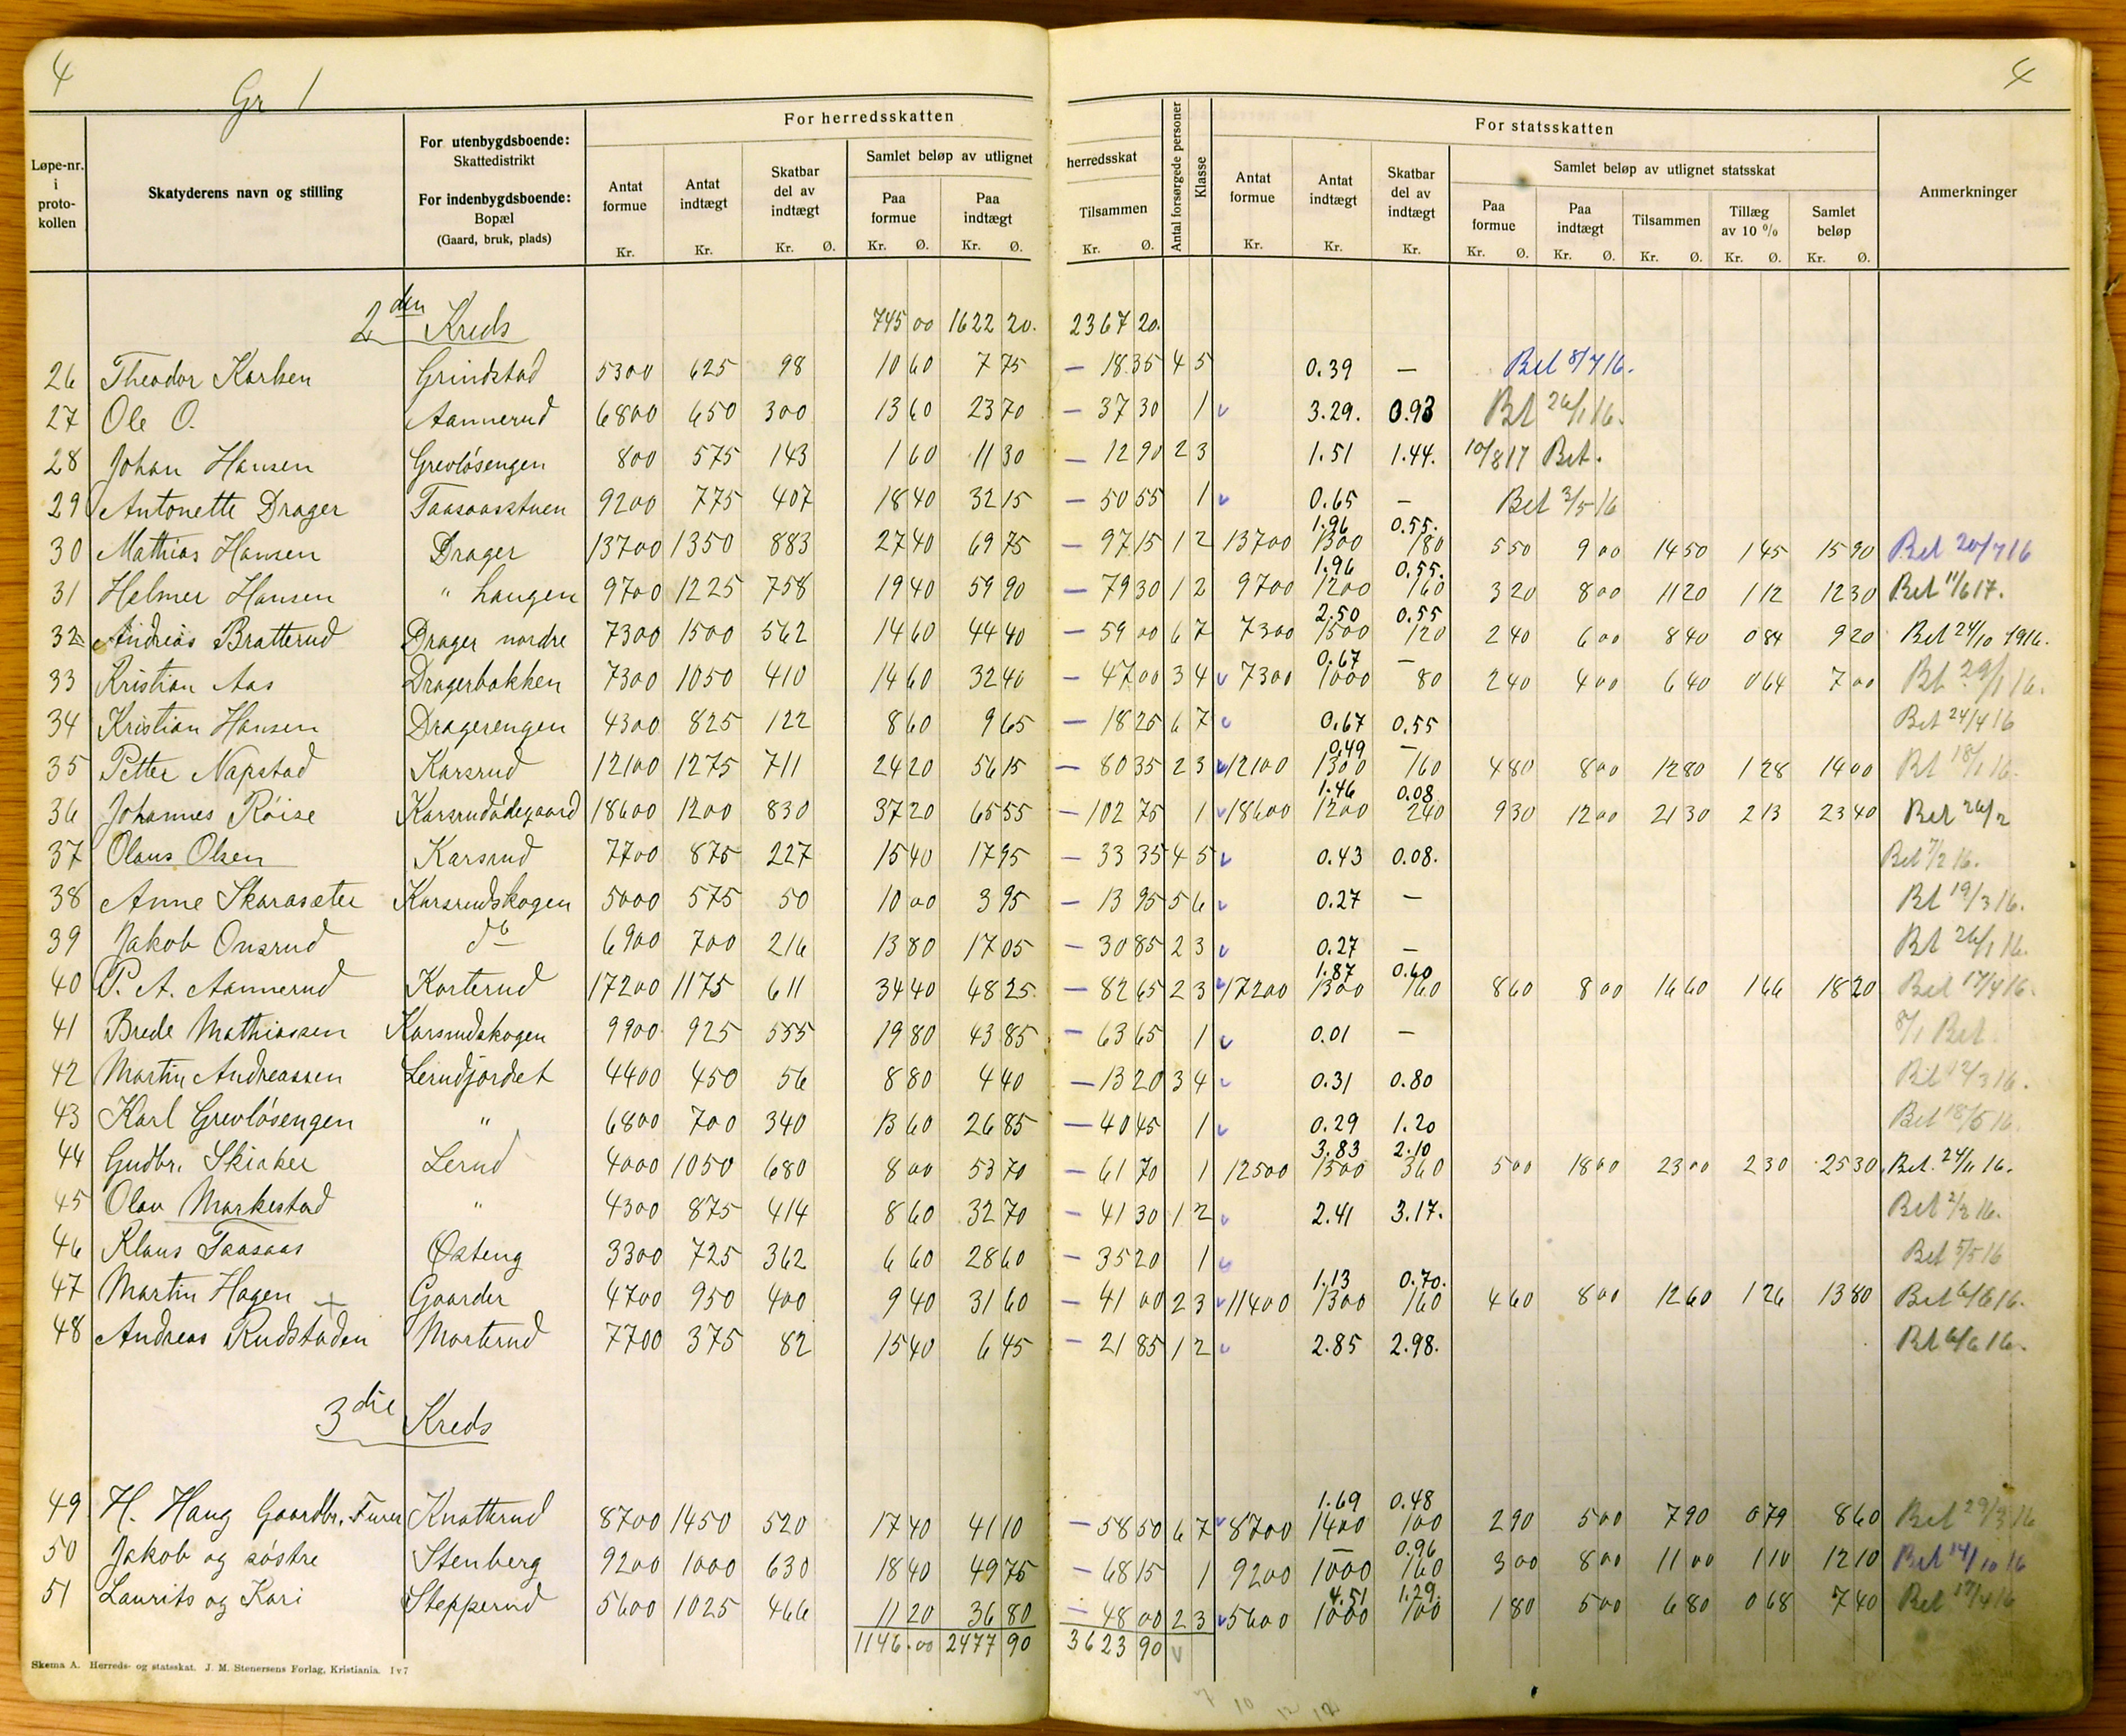 4
Gr 1
4
For herredsskatten
For statsskatten
Løpe-nr. i proto-kollen
Skatyderens navn og stilling
For utenbygdsboende: Skattedistrikt
For indenbygdsboende: Bopæl (Gaard, bruk, plads)
Antat formue Kr.
Antat indtægt Kr.
Skatbar del av indtægt Kr. Ø.
Samlet beløp av utlignet herredsskat
Paa formue Kr. Ø.
Paa indtægt Kr. Ø.
Tilsammen Kr. Ø.
Antal forsørgede personer
Klasse
Antat formue Kr.
Antat indtægt Kr.
Skatbar del av indtægt Kr.
Samlet beløp av utlignet statsskat
Paa formue Kr. Ø.
Paa indtægt Kr. Ø.
Tilsammen Kr. Ø.
Tillæg av 10 % Kr. Ø.
Samlet beløp Kr. Ø.
Anmerkninger
2den Kreds 745 00 1622 20. 2367 20.
26 Theodor Karlsen Grindstad 5300 625 98 10 60 7 75 — 18 35 4 5 0.39 — Bet 8/7 16.
27 Ole O. Aannerud 6800 650 300 13 60 23 70 — 37 30 1 v 3.29. 0.93 Bet 26/1 16.
28 Johan Hansen Grevløsengen 800 575 143 1 60 11 30 — 12 90 2 3 1.51 1.44. 10/8 17 Bet.
29 Antonette Drager Taasaasstuen 9200 775 407 18 40 32 15 — 50 55 1 v 0.65 — Bet 3/5 16
1.96 0.55.
30 Mathias Hansen Drager 13700 1350 883 27 40 69 75 — 97 15 1 2 13700 1300 180 5 50 9 00 14 50 1 45 15 90 Bet 20/7 16
1.96 0.55.
31 Helmer Hansen " Haugen 9700 1225 758 19 40 59 90 — 79 30 1 2 9700 1200 160 3 20 8 00 11 20 1 12 12 30 Bet 11/6 17.
2.50 0.55
32 Andreas Bratterud Drager nordre 7300 1500 562 14 60 44 40 — 59 00 6 7 7300 1500 120 2 40 6 00 8 40 0 84 9 20 Bet 24/10 1916.
0.67 —
33 Kristian Aas Dragerbakken 7300 1050 410 14 60 32 40 — 47 00 3 4 v 7300 1000 80 2 40 4 00 6 40 0 64 7 00 Bet 29/1 16.
34 Kristian Hansen Dragerengen 4300 825 122 8 60 9 65 — 18 25 6 7 v 0.67 0.55 Bet 24/4 16
0.49 —
35 Petter Napstad Karsrud 12100 1275 711 24 20 56 15 — 80 35 2 3 v 12100 1300 160 4 80 8 00 12 80 1 28 14 00 Bet 18/1 16.
1.46 0.08
36 Johannes Røise Karsrudødegaard 18600 1200 830 37 20 65 55 — 102 75 1 v 18600 1200 240 9 30 12 00 21 30 2 13 23 40 Bet 26/2
37 Olaus Olsen Karsrud 7700 875 227 15 40 17 95 — 33 35 4 5 v 0.43 0.08. Bet 7/2 16.
38 Anne Skarasæter Karsrudskogen 5000 575 50 10 00 3 95 — 13 95 5 6 v 0.27 — Bet 19/3 16.
39 Jakob Onsrud do 6900 700 216 13 80 17 05 — 30 85 2 3 v 0.27 — Bet 26/1 16.
1.87 0.60
40 P. A. Aannerud Korterud 17200 1175 611 34 40 48 25 — 82 65 2 3 v 17200 1300 160 8 60 8 00 16 60 1 66 18 20 Bet 17/4 16.
41 Brede Mathiassen Karsrudskogen 9900 925 555 19 80 43 85 — 63 65 1 v 0.01 — 8/1 Bet.
42 Martin Andreassen Lerudjordet 4400 450 56 8 80 4 40 — 13 20 3 4 v 0.31 0.80 Bet 12/3 16.
43 Karl Grevløsengen " 6800 700 340 13 60 26 85 — 40 45 1 v 0.29 1.20 Bet 18/5 16.
3.83 2.10
44 Gudbr. Skiaker Lerud 4000 1050 680 8 00 53 70 — 61 70 1 12500 1500 360 5 00 18 00 23 00 2 30 25 30 Bet. 24/11 16.
45 Olav Markestad " 4300 875 414 8 60 32 70 — 41 30 1 2 v 2.41 3.17. Bet 2/2 16.
46 Klaus Taasaas Østeng 3300 725 362 6 60 28 60 — 35 20 1 v Bet 5/5 16
1.13 0.70.
47 Martin Hagen + Gaarder 4700 950 400 9 40 31 60 — 41 00 2 3 v 11400 1300 160 4 60 8 00 12 60 1 26 13 80 Bet 6/6 16.
48 Andreas Rudstaden Morterud 7700 375 82 15 40 6 45 — 21 85 1 2 v 2.85 2.98. Bet 6/6 16.
3die Kreds
1.69 0.48
49 H. Haug Gaardbr. Furu Knatterud 8700 1450 520 17 40 41 10 — 58 50 6 7 v 8700 1400 100 2 90 5 00 7 90 0 79 8 60 Bet 29/3 16
— 0.96
50 Jakob og søstre Stenberg 9200 1000 630 18 40 49 75 — 68 15 1 9200 1000 160 3 00 8 00 11 00 1 10 12 10 Bet 14/10 16
4.51 1.29.
51 Laurits og Kari Stepperud 5600 1025 466 11 20 36 80 — 48 00 2 3 v 5600 1000 100 1 80 5 00 6 80 0 68 7 40 Bet 17/4 16
1146.00 2477 90 3623 90 v
Skema A. Herreds- og statsskat. J. M. Stenersens Forlag, Kristiania. I v 7